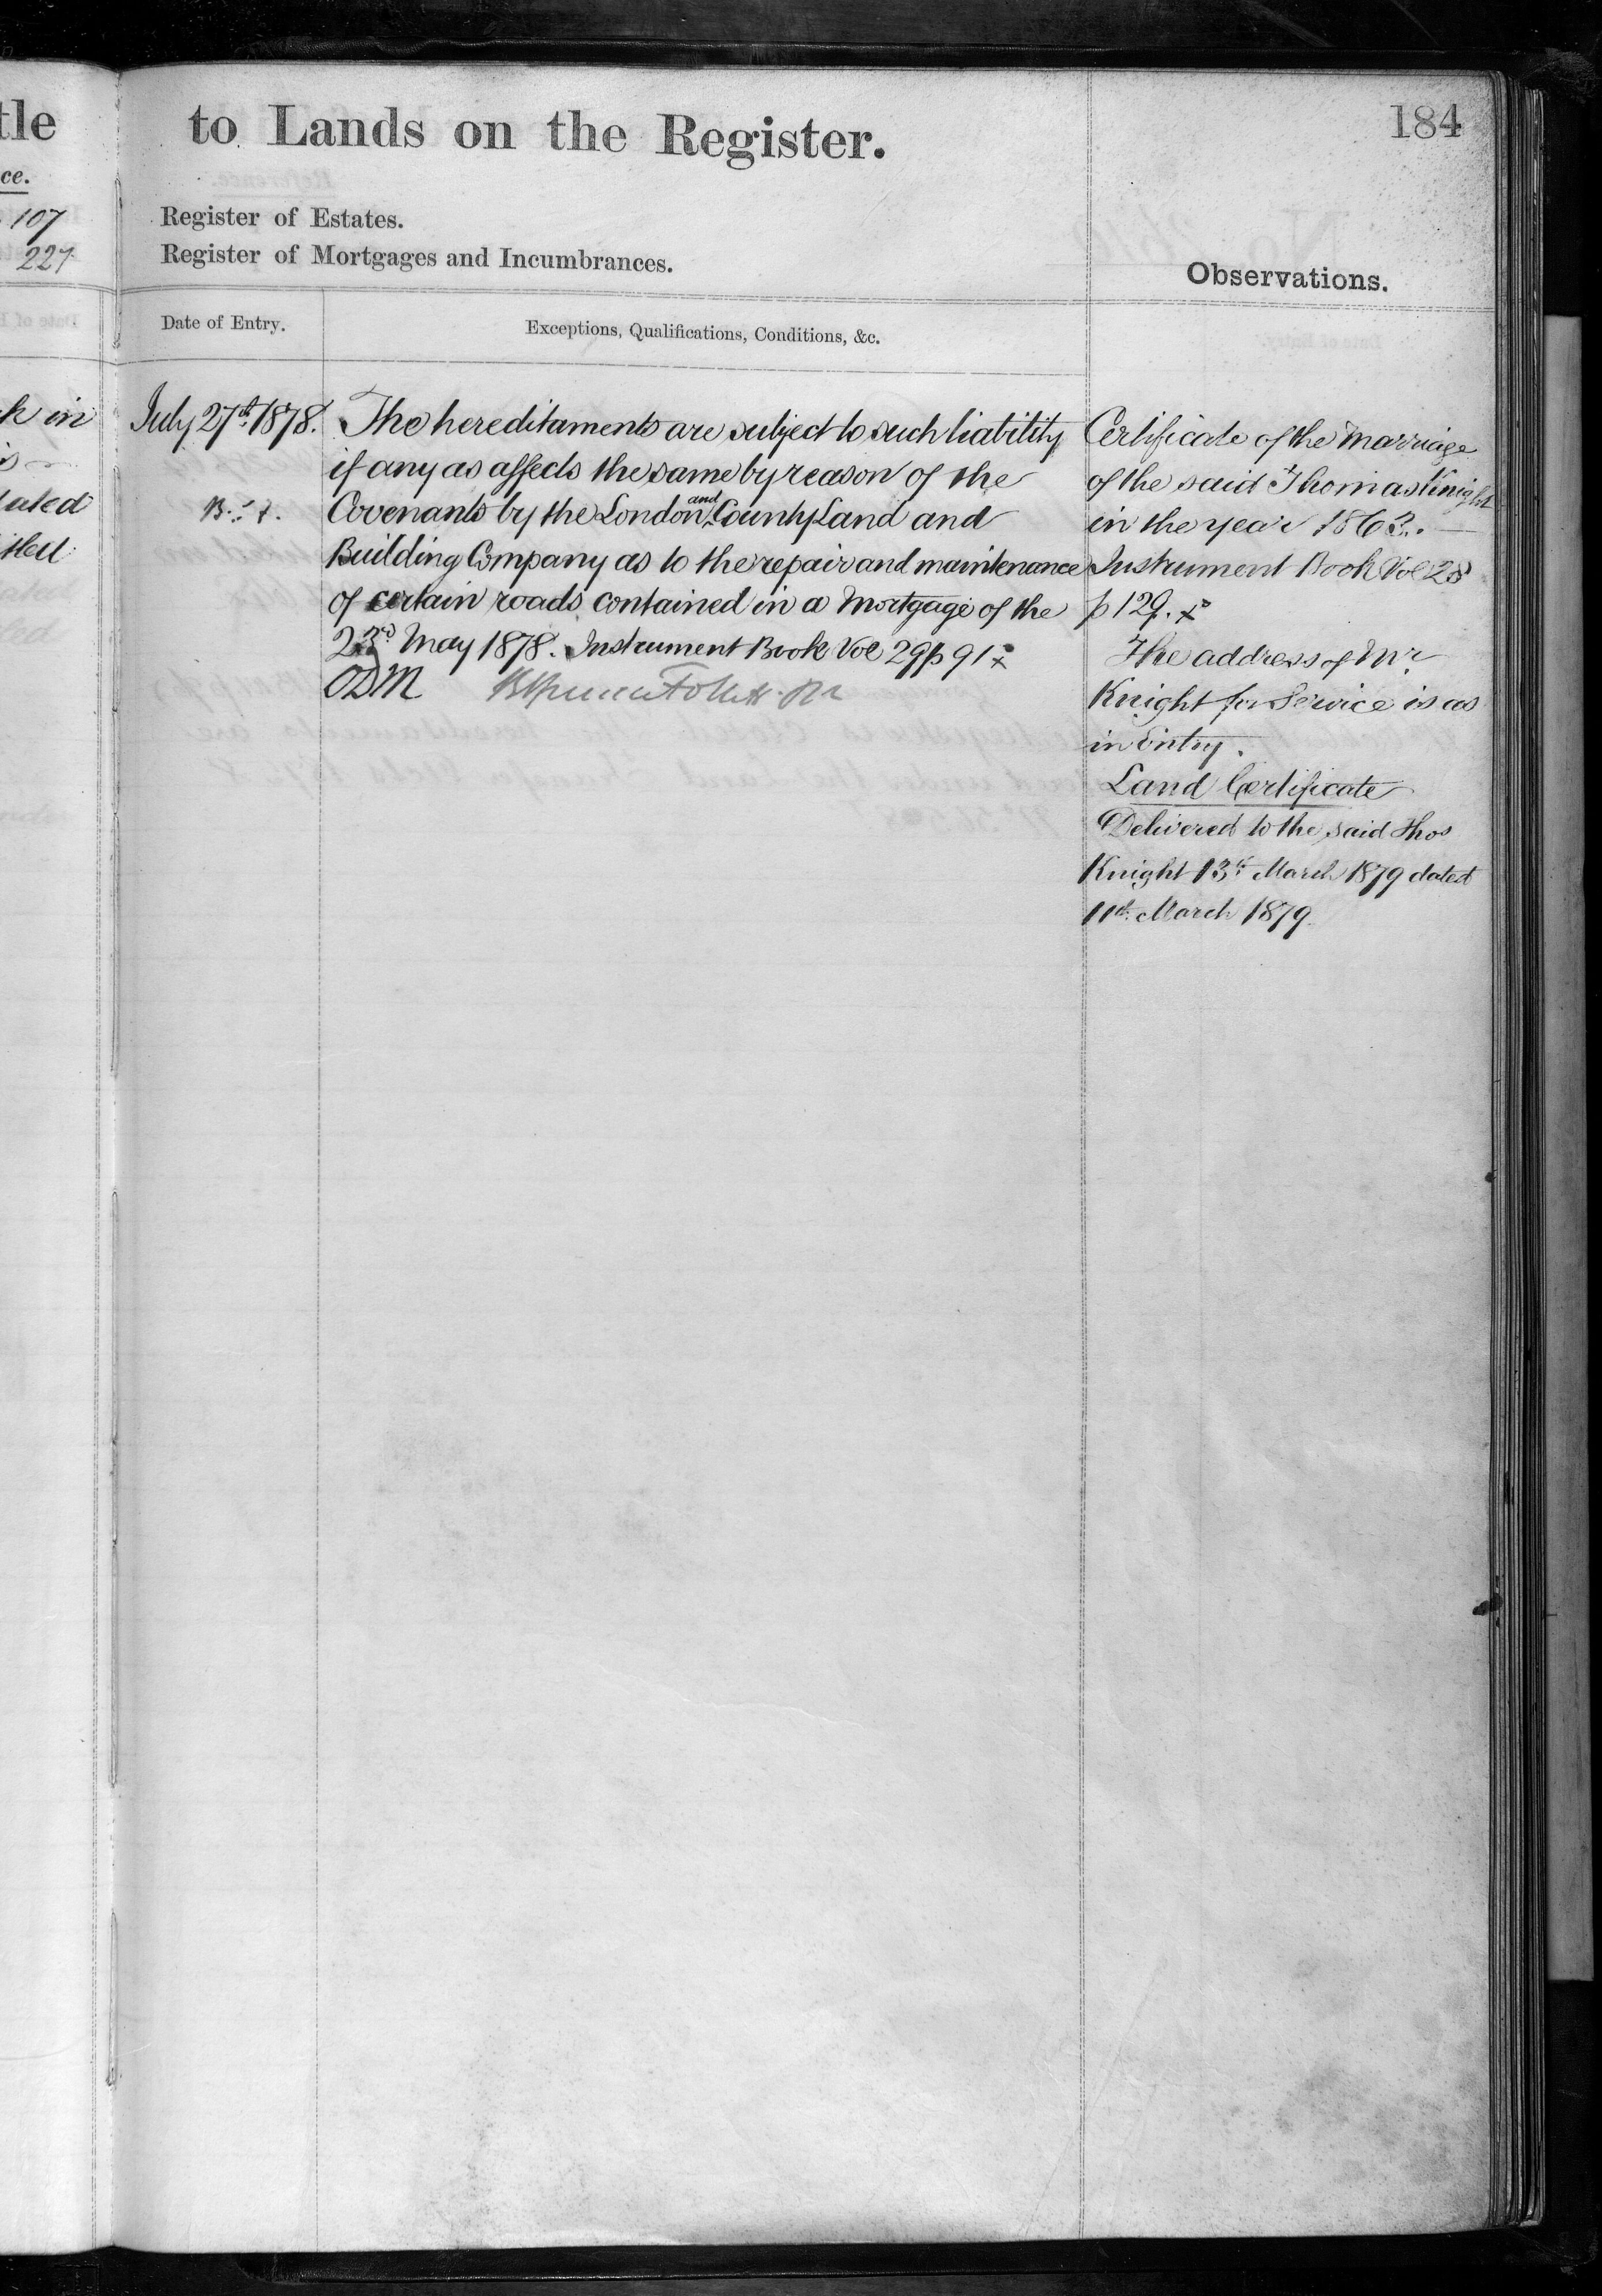 tle
ce.
107
227
k in
uted
tled
to Lands on the Register.
184
Register of Estates.
Register of Mortgages and Incumbrances.
Observations.
Date of Entry.
Exceptions, Qualifications, Conditions, &c.
July 27th 1878.
The hereditaments are subject to such liability
if any as affects the same by reason of the
Covenants by the London and County Land and
Building Company as to the repair and maintenance
of certain roads contained in a Mortgage of the
23rd May 1878. Instrument Book Vol 29 p 91 x
ODM
Certificate of the Marriage
of the said Thomas Knight
in the year 1863. —
Instrument Book Vol 28
p 129. x
The address of Mr
Knight for Service is as
in Entry.
Land Certificate
Delivered to the said Thos
Knight 13th March 1879 dated
11th March 1879